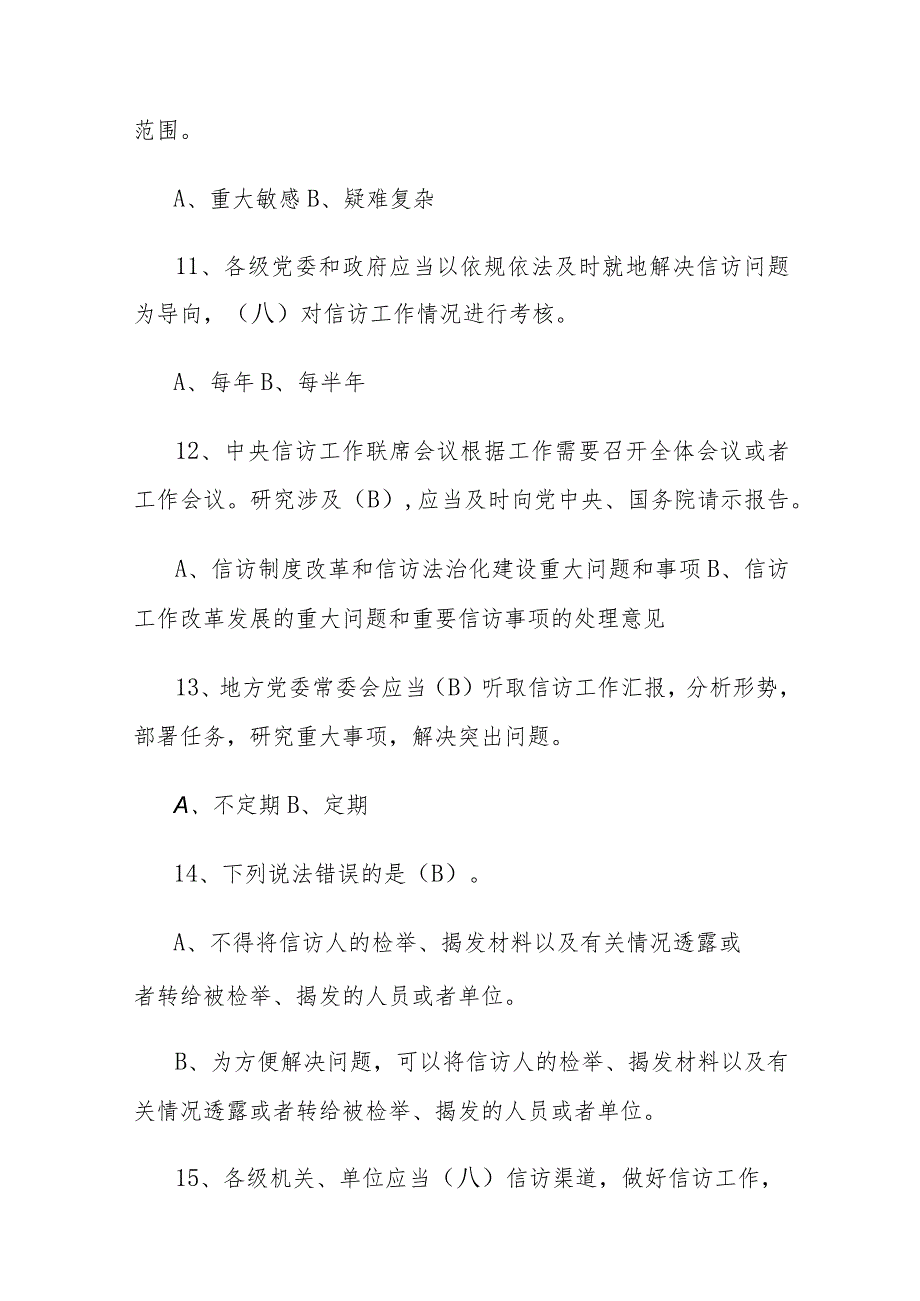 范围。
A、重大敏感B、疑难复杂
11、各级党委和政府应当以依规依法及时就地解决信访问题
为导向，（八）对信访工作情况进行考核。
A、每年B、每半年
12、中央信访工作联席会议根据工作需要召开全体会议或者
工作会议。研究涉及（B）,应当及时向党中央、国务院请示报告。
A、信访制度改革和信访法治化建设重大问题和事项B、信访
工作改革发展的重大问题和重要信访事项的处理意见
13、地方党委常委会应当（B）听取信访工作汇报，分析形势，
部署任务，研究重大事项，解决突出问题。
A、不定期B、定期
14、下列说法错误的是（B）。
A、不得将信访人的检举、揭发材料以及有关情况透露或
者转给被检举、揭发的人员或者单位。
B、为方便解决问题，可以将信访人的检举、揭发材料以及有
关情况透露或者转给被检举、揭发的人员或者单位。
15、各级机关、单位应当（八）信访渠道，做好信访工作，